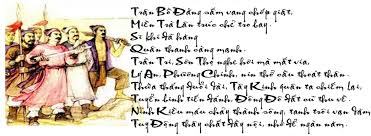 Trận Bồ Đằng sấm vang chớp giật,
Miền Trà Lân trúc chẻ tro bay
Sĩ khí đã hăng
Quân thanh càng mạnh.
Trần Trí, Sơn Thọ nghe hơi mà mất vía,
Lý An, Phương Chính, nín thở cầu thoát thân.
Thừa thắng đuổi dài, Tây Kinh quân ta chiếm lại,
Tuyển binh tiến đánh, Đông Đô đất cũ thu về.
Ninh Kiều máu chảy thành sông, tanh trôi vạn dặm
Tụy Động thây chất đầy nội, nhơ để ngàn năm.